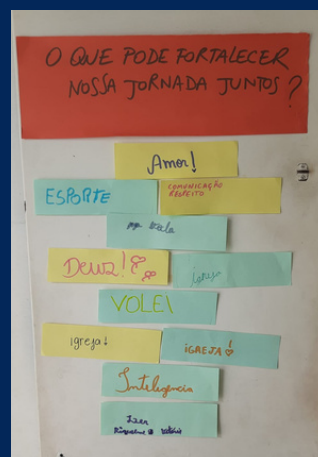 O QUE PODE FORTALECER
NOSSA JORNADA JUNTOS?
Amor!
ESPORTE
COMUNICAÇÃO
RESPEITO
Deus!
Igreja
VOLEI
igreja!
IGREJA!
Inteligencia